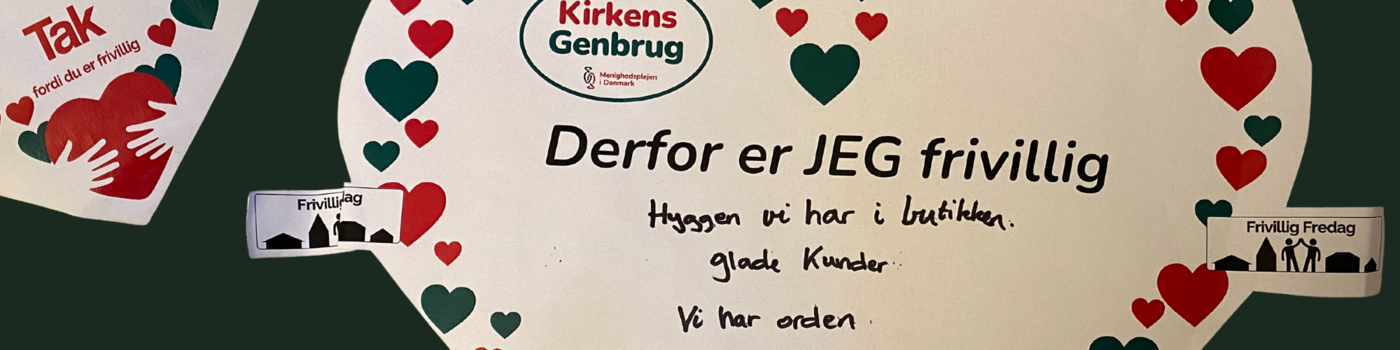 Tak
fordi du er frivillig
Kirkens
Genbrug
Menighedsplejen
i Danmark
Derfor er JEG frivillig
Hyggen vi har i butikken.
glade Kunder
Vi har orden
Frivillig
dag
Frivillig Fredag